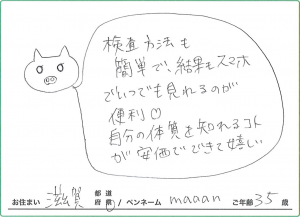 検査方法も
簡単で、結果もスマホ
でいつでも見れるのが
便利♡
自分の体質を知れるコト
が安価でできて嬉しい
お住まい 滋賀 都道府県 / ペンネーム maaan ご年齢 35 歳